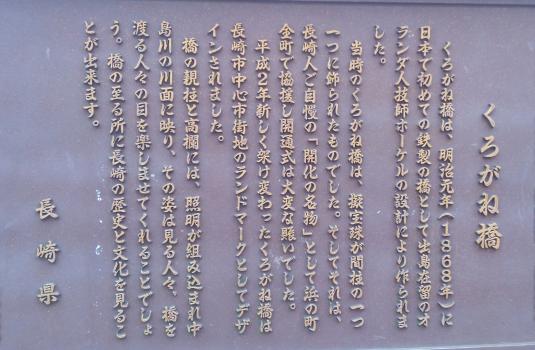 くろがね橋
くろがね橋は、明治元年(1868年)に
日本で初めての鉄製の橋として出島在留のオ
ランダ人技師ボーゲルの設計により作られま
した。
当時のくろがね橋は、擬宝珠が間柱の一つ
一つに飾られたものでした。そしてそれは、
長崎人ご自慢の「開化の名物」として、浜の町
全町で協援し開通式は大変な賑いでした。
平成2年新しく架け変わったくろがね橋は
長崎市中心市街地のランドマークとしてデザ
インされました。
橋の親柱と高欄には、照明が組み込まれ中
島川の川面に映り、その姿は見る人々、橋を
渡る人々の目を楽しませてくれることでしょ
う。橋の至る所に長崎の歴史と文化を見るこ
とが出来ます。
長崎県